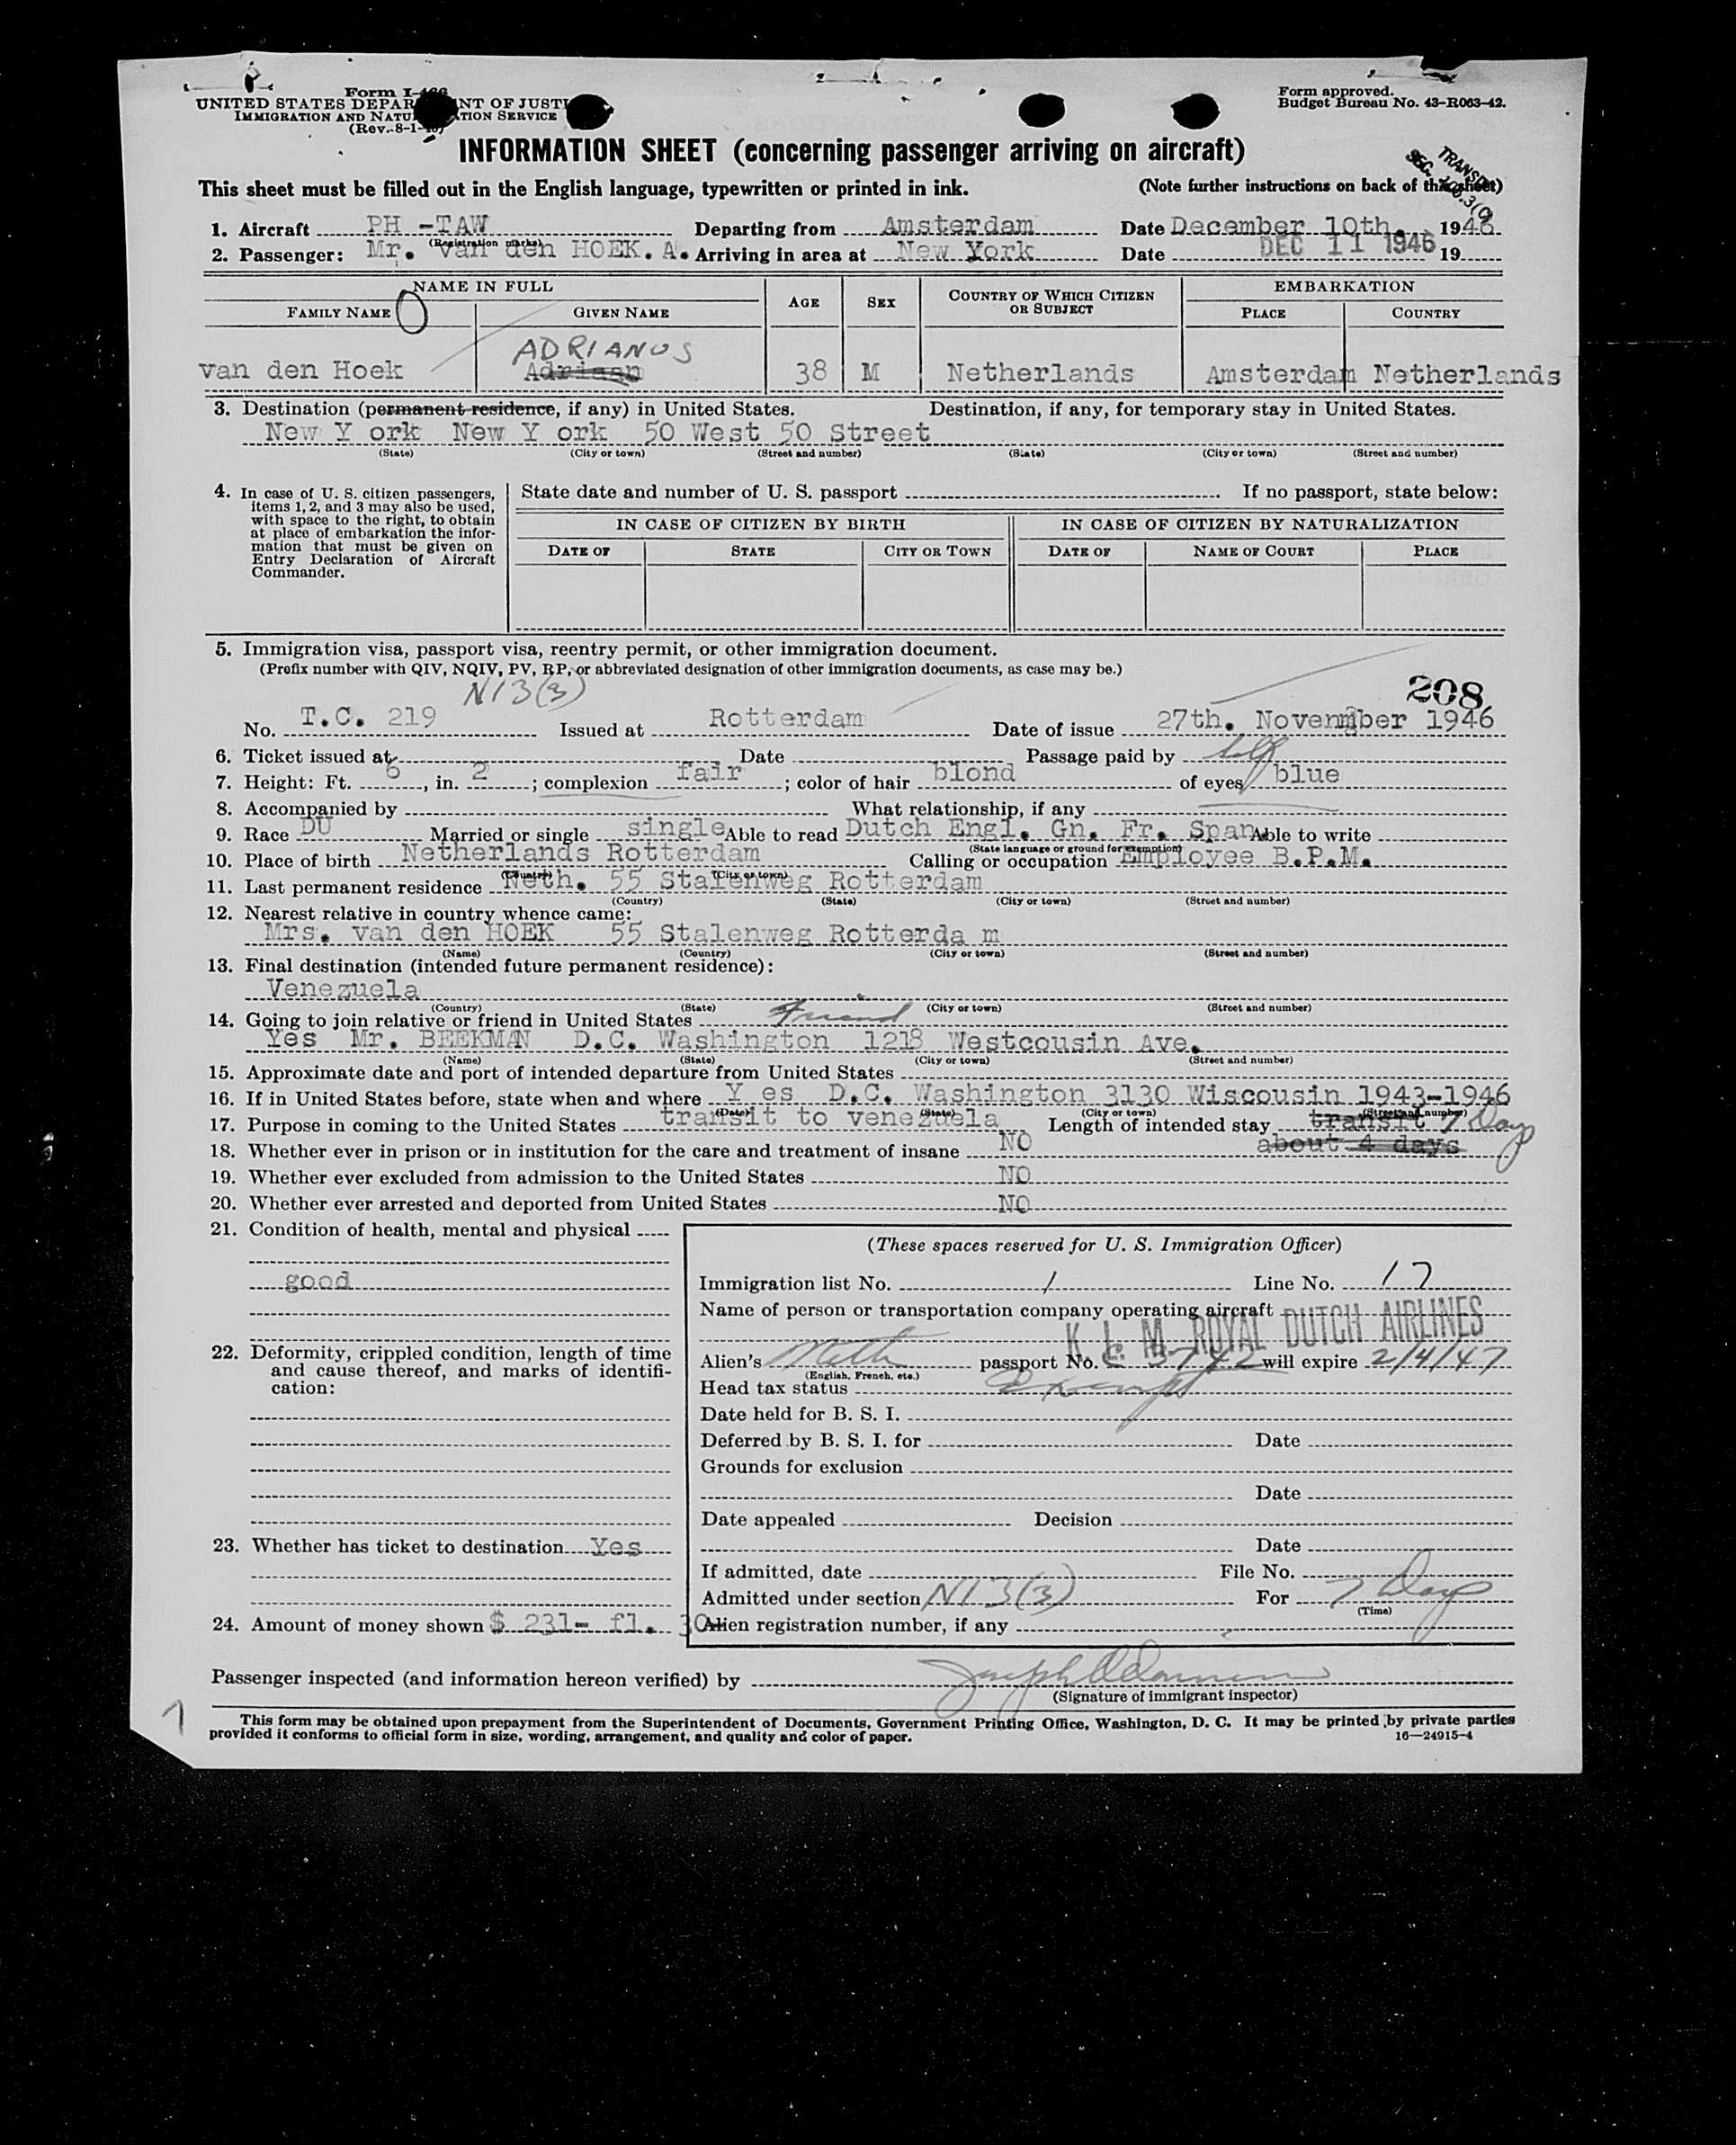 Form I-466
UNITED STATES DEPARTMENT OF JUSTICE
IMMIGRATION AND NATURALIZATION SERVICE
(Rev. 8-1-
Form approved.
Budget Bureau No. 43-R063-42.
INFORMATION SHEET (concerning passenger arriving on aircraft)
TRANSIT
SEC.
This sheet must be filled out in the English language, typewritten or printed in ink. (Note further instructions on back of this sheet)
1. Aircraft PH -TAW Departing from Amsterdam Date December 10th. 1946
(Registration marks)
2. Passenger: Mr. van den HOEK. A. Arriving in area at New York Date DEC 11 1946 19
NAME IN FULL AGE SEX COUNTRY OF WHICH CITIZEN OR SUBJECT EMBARKATION
FAMILY NAME GIVEN NAME PLACE COUNTRY
ADRIANUS
van den Hoek Adriaan 38 M Netherlands Amsterdam Netherlands
3. Destination (permanent residence, if any) in United States. Destination, if any, for temporary stay in United States.
New Y ork New Y ork 50 West 50 Street
(State) (City or town) (Street and number) (State) (City or town) (Street and number)
4. In case of U. S. citizen passengers, items 1, 2, and 3 may also be used, with space to the right, to obtain at place of embarkation the information that must be given on Entry Declaration of Aircraft Commander.
State date and number of U. S. passport If no passport, state below:
IN CASE OF CITIZEN BY BIRTH IN CASE OF CITIZEN BY NATURALIZATION
DATE OF STATE CITY OR TOWN DATE OF NAME OF COURT PLACE
5. Immigration visa, passport visa, reentry permit, or other immigration document.
(Prefix number with QIV, NQIV, PV, RP, or abbreviated designation of other immigration documents, as case may be.)
N13(3)
208
No. T.C. 219 Issued at Rotterdam Date of issue 27th. November 1946
6. Ticket issued at Date Passage paid by self
7. Height: Ft. 6, in. 2; complexion fair; color of hair blond of eyes blue
8. Accompanied by What relationship, if any
9. Race DU Married or single single Able to read Dutch Engl. Gn. Fr. Span. Able to write
(State language or ground for exemption)
10. Place of birth Netherlands Rotterdam Calling or occupation Employee B.P.M.
(Country) (City or town)
11. Last permanent residence Neth. 55 Stalenweg Rotterdam
(Country) (State) (City or town) (Street and number)
12. Nearest relative in country whence came:
Mrs. van den HOEK 55 Stalenweg Rotterda m
(Name) (Country) (City or town) (Street and number)
13. Final destination (intended future permanent residence):
Venezuela
(Country) (State) (City or town) (Street and number)
14. Going to join relative or friend in United States Friend
Yes Mr. BEEKMAN D.C. Washington 1218 Westcousin Ave.
(Name) (State) (City or town) (Street and number)
15. Approximate date and port of intended departure from United States
16. If in United States before, state when and where Y es D.C. Washington 3130 Wiscousin 1943-1946
(Date) (State) (City or town) (Street and number)
17. Purpose in coming to the United States transit to venezuela Length of intended stay transit 7 Days
about 4 days
18. Whether ever in prison or in institution for the care and treatment of insane NO
19. Whether ever excluded from admission to the United States NO
20. Whether ever arrested and deported from United States NO
21. Condition of health, mental and physical
good
22. Deformity, crippled condition, length of time and cause thereof, and marks of identification:
23. Whether has ticket to destination Yes
24. Amount of money shown $ 231- fl. 30
(These spaces reserved for U. S. Immigration Officer)
Immigration list No. 1 Line No. 17
Name of person or transportation company operating aircraft
K. L. M. ROYAL DUTCH AIRLINES
Alien's Neth passport No. C 3742 will expire 2/4/47
(English, French, etc.)
Head tax status Exempt
Date held for B. S. I.
Deferred by B. S. I. for Date
Grounds for exclusion
Date
Date appealed Decision
Date
If admitted, date File No.
Admitted under section N13(3) For 7 Days
(Time)
Alien registration number, if any
Passenger inspected (and information hereon verified) by
(Signature of immigrant inspector)
This form may be obtained upon prepayment from the Superintendent of Documents, Government Printing Office, Washington, D. C. It may be printed by private parties
provided it conforms to official form in size, wording, arrangement, and quality and color of paper.
16—24915-4